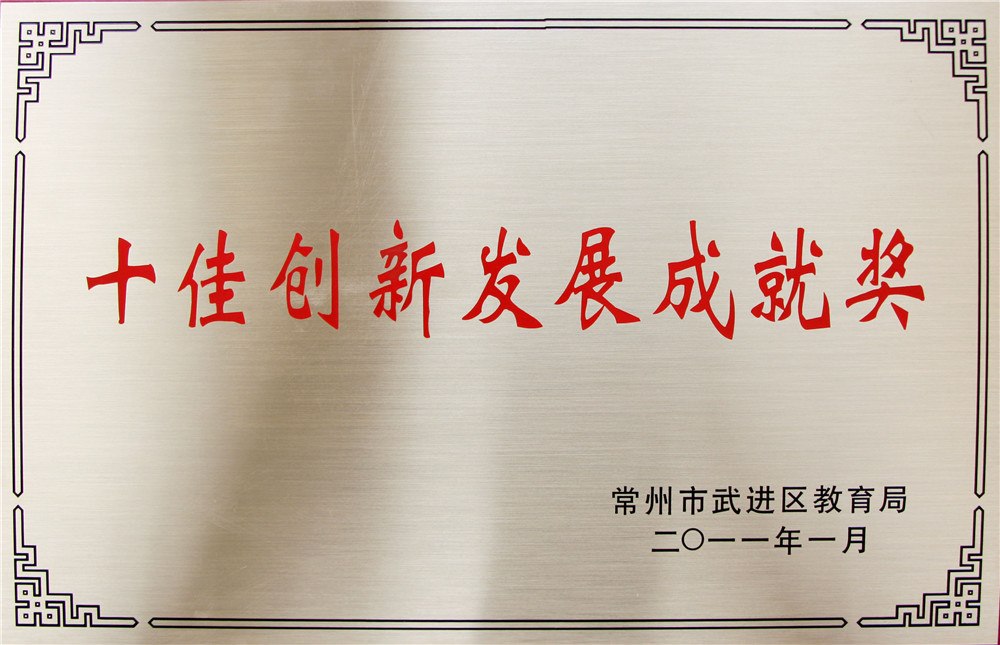 十佳创新发展成就奖
常州市武进区教育局
二〇一一年一月